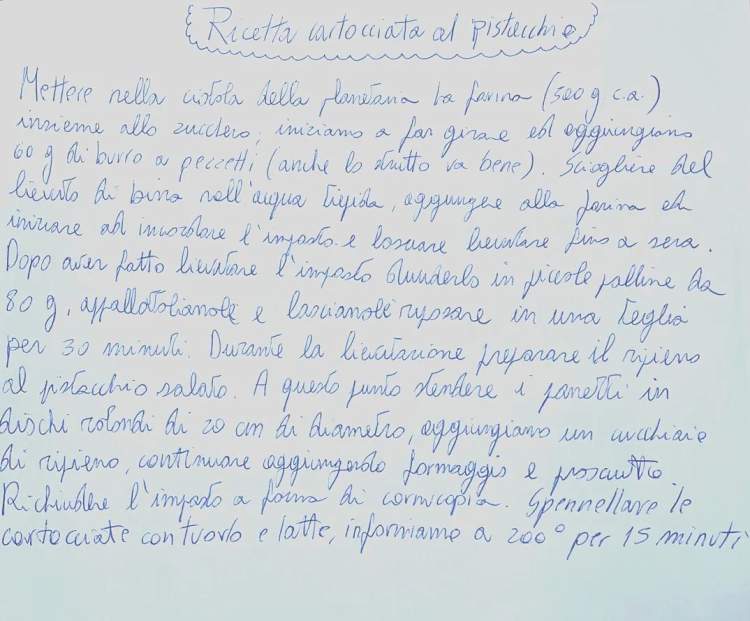 Ricetta cartocciata al pistacchio
Mettere nella ciotola della planetaria la farina (500 g c.a.)
insieme allo zucchero, iniziamo a far girare ed aggiungiamo
60 g di burro a pezzetti (anche lo strutto va bene). Sciogliere del
lievito di birra nell'acqua tiepida, aggiungere alla farina ed
iniziare ad incordare l'impasto e lasciare lievitare fino a sera.
Dopo aver fatto lievitare l'impasto dividerlo in piccole palline da
80 g, appallottoliamole e lasciamole riposare in una teglia
per 30 minuti. Durante la lievitazione preparare il ripieno
al pistacchio salato. A questo punto stendere i panetti in
dischi rotondi di 20 cm di diametro, aggiungiamo un cucchiaio
di ripieno, continuare aggiungendo formaggio e prosciutto.
Richiudere l'impasto a forma di cornicopia. Spennellare le
cartocciate con tuorlo e latte, inforniamo a 200° per 15 minuti